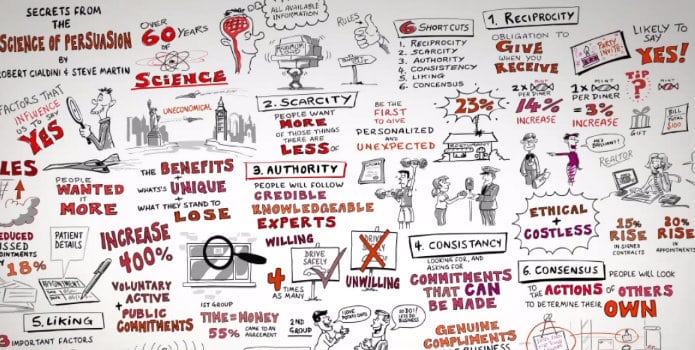 SECRETS FROM THE
SCIENCE OF PERSUASION
BY
ROBERT CIALDINI & STEVE MARTIN
FACTORS THAT
INFLUENCE
US
SAY
YES
OVER
60 YEARS
OF
SCIENCE
ALL AVAILABLE
INFORMATION
RULES
6 SHORTCUTS
1. RECIPROCITY
2. SCARCITY
3. AUTHORITY
4. CONSISTENCY
5. LIKING
6. CONCENSUS
1. RECIPROCITY
OBLIGATION TO
GIVE
WHEN YOU
RECEIVE
PARTY
INVITE
LIKELY TO
SAY
YES!
2x MINT
PER DINER
14%
INCREASE
1x MINT
PER DINER
= 3%
INCREASE
TIP
?
GIFT
BILL
TOTAL
$100
UNECONOMICAL
2. SCARCITY
PEOPLE WANT
MORE
OF THOSE THINGS
THERE
ARE
LESS OF
BE THE
FIRST
TO GIVE
PERSONALIZED
AND
UNEXPECTED
23%
HEY
BRILLIANT!
REALTOR
LES
PEOPLE
WANTED
IT
MORE
THE BENEFITS
+
WHATS'S UNIQUE
+
WHAT THEY STAND TO
LOSE
3. AUTHORITY
PEOPLE WILL FOLLOW
CREDIBLE
KNOWLEDGEABLE
EXPERTS
ETHICAL
+
COSTLESS
15%
RISE
IN SIGNED
CONTRACTS
20%
RISE
IN
APPOINTMENTS
18%
PATIENT
DETAILS
APPOINTMENT
INCREASE
400%
VOLUNTARY
ACTIVE
+
PUBLIC
COMMITMENTS
WILLING
4
TIMES
AS MANY
DRIVE
SAFELY
UNWILLING
4. CONSISTANCY
LOOKING FOR, AND
ASKING FOR
COMMITMENTS
THAT CAN
BE MADE
6. CONSENSUS
PEOPLE WILL LOOK
TO THE ACTIONS OF OTHERS
TO DETERMINE THEIR
OWN
5. LIKING
3 IMPORTANT FACTORS
1ST GROUP
TIME = MONEY
55%
CAME TO AN
AGREEMENT
2ND
GROUP
GENUINE
COMPLIMENTS
BUSINESS